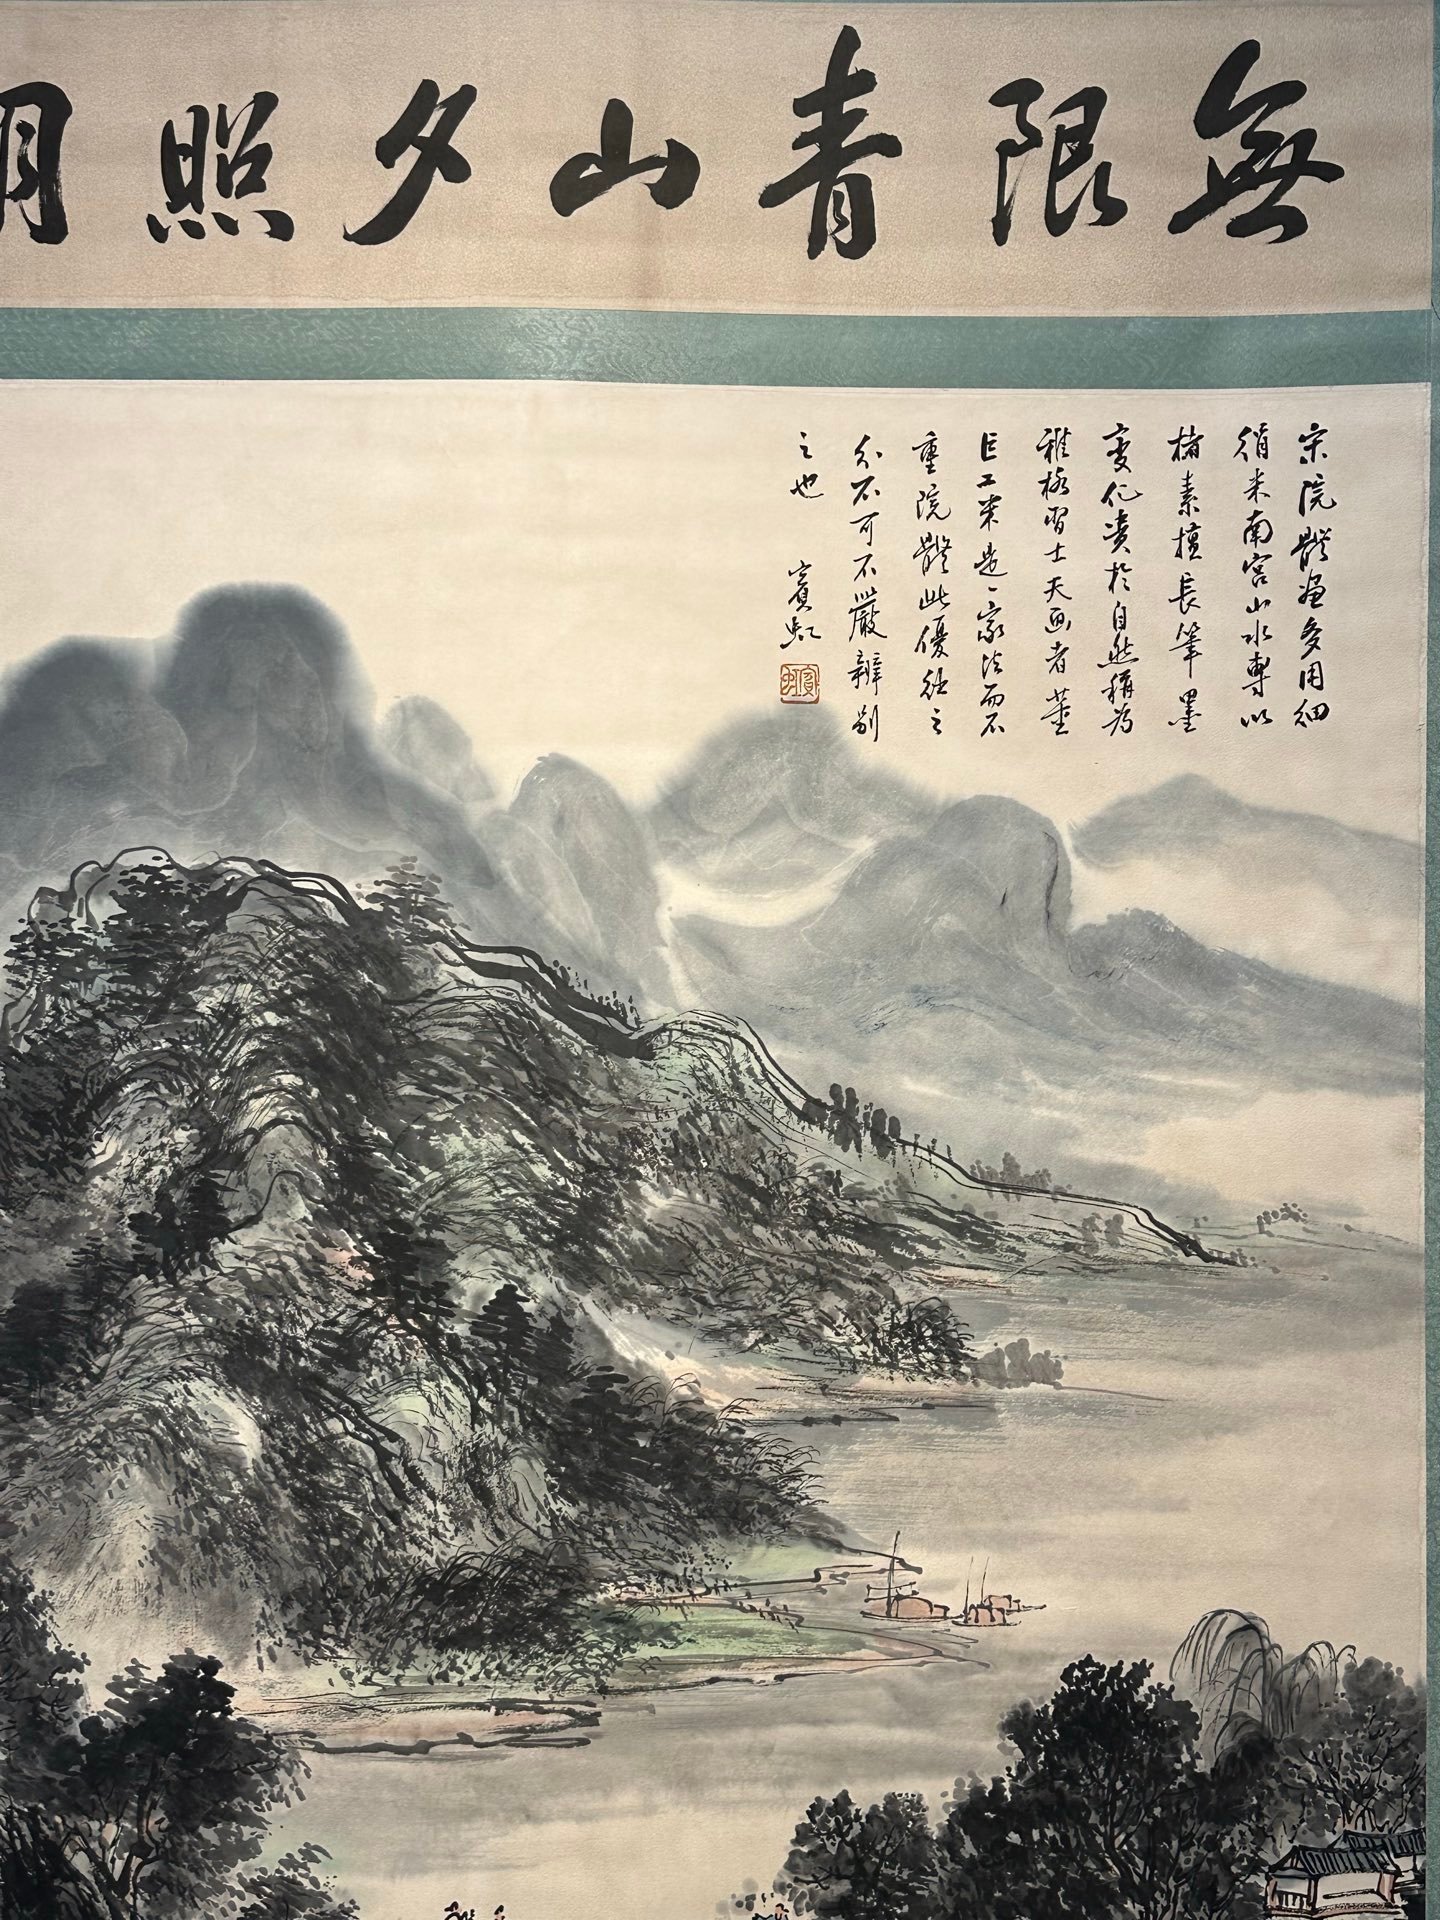 無限青山夕照明
宋院體畫多用細
絹米南宮山水專以
楮素擅長筆墨
變化貴於自然稱為
雅格習士夫画者董
巨工米是一家法而不
重院體此優絀之
分不可不嚴辨別
之也 賓虹
賓虹